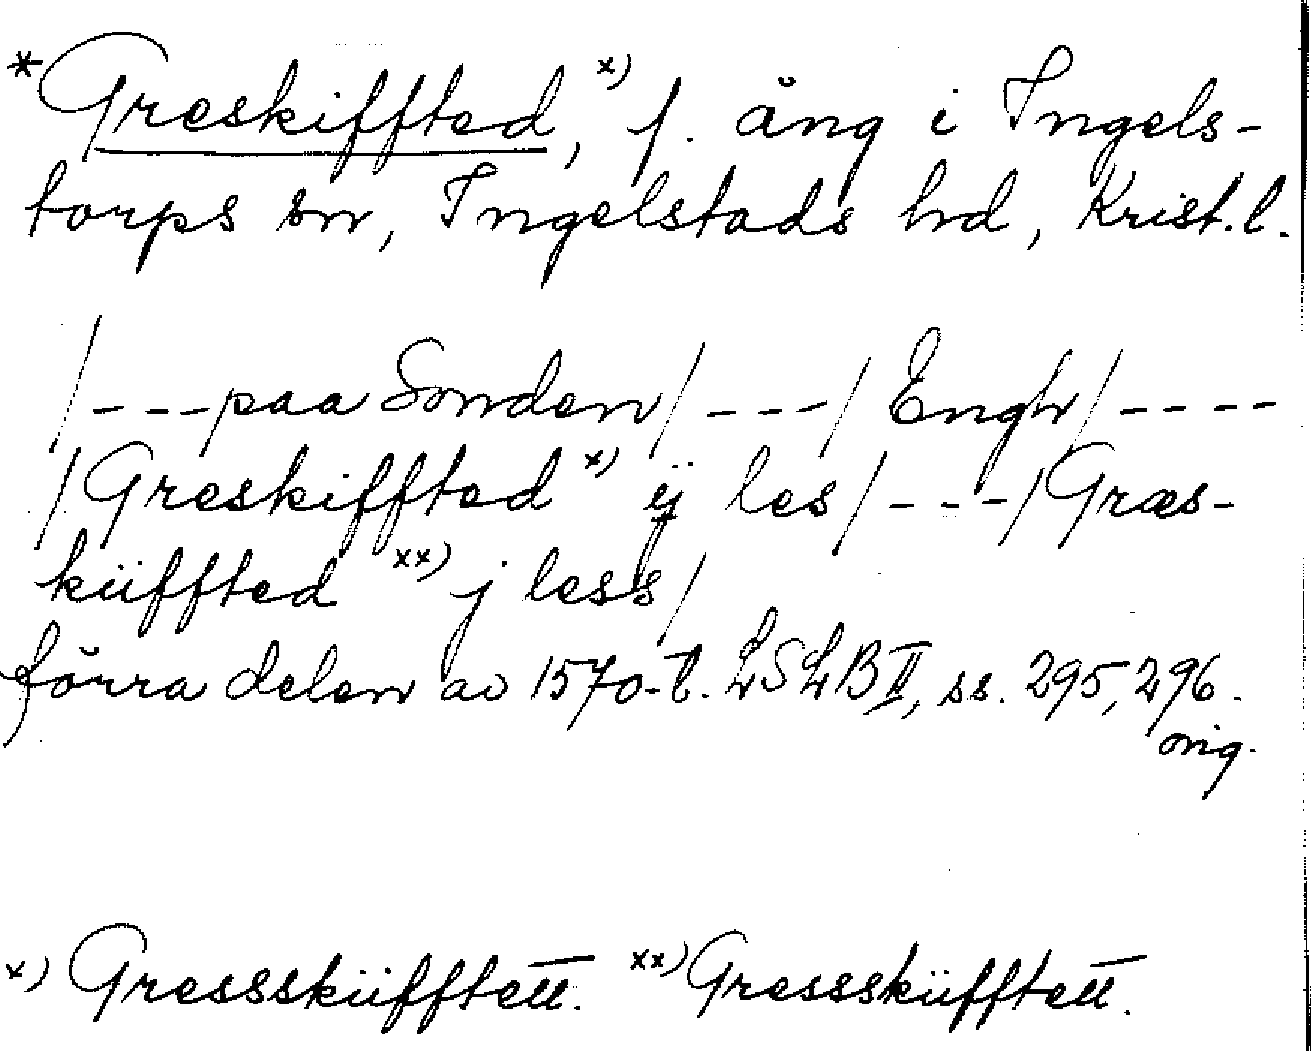 *Greskiffted, x) f. äng i Ingels-
torps sn, Ingelstads hd, Krist. l.
/---paa Sonden/---/Engh/----
/Greskiffted x) ij les/---/Græs-
küffted xx) j less/
förra delen av 1570-t. LSLB II, ss. 295, 296.
orig.
x) Gressskiifftett. xx) Gressskiifftett.